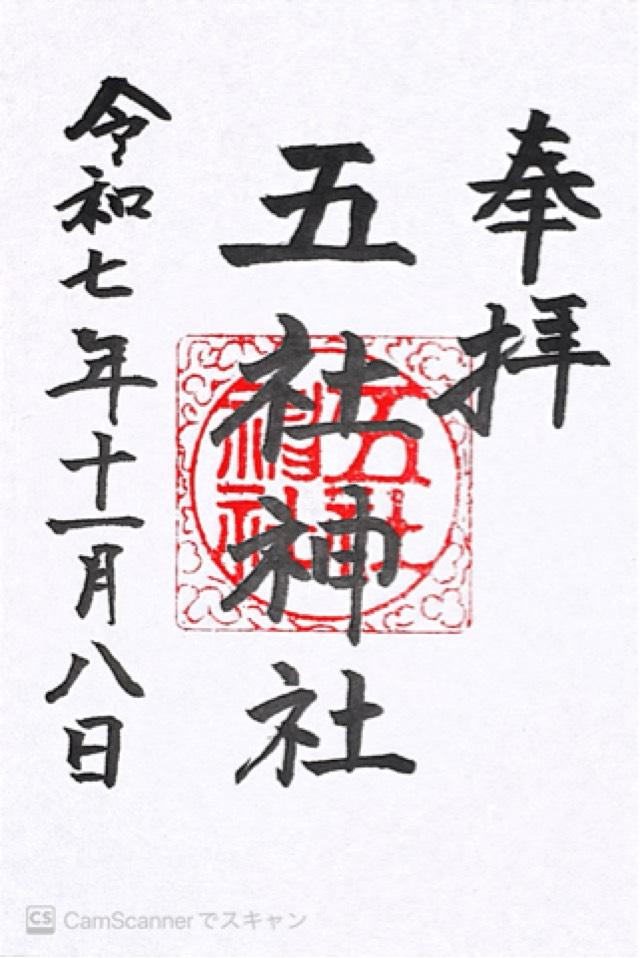 奉拝
五社神社
五社神社
令和七年十一月八日
CS CamScannerでスキャン